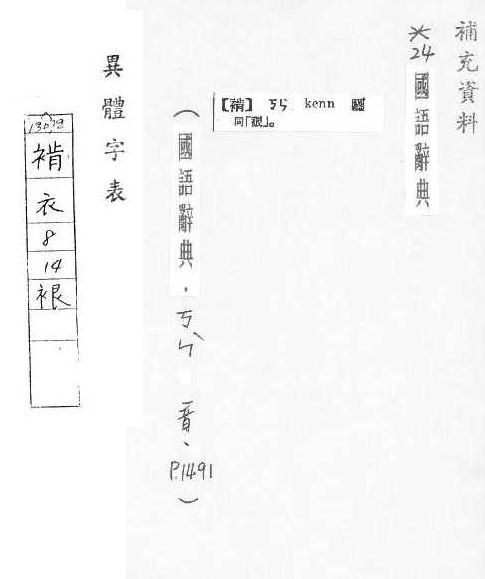 補充資料
※24國語辭典
【褃】 ㄎㄣˋ kenn
同「裉」。
(國語辭典.ㄎㄣˋ 音、P.1491)
異體字表
褃
衣
8
14
裉